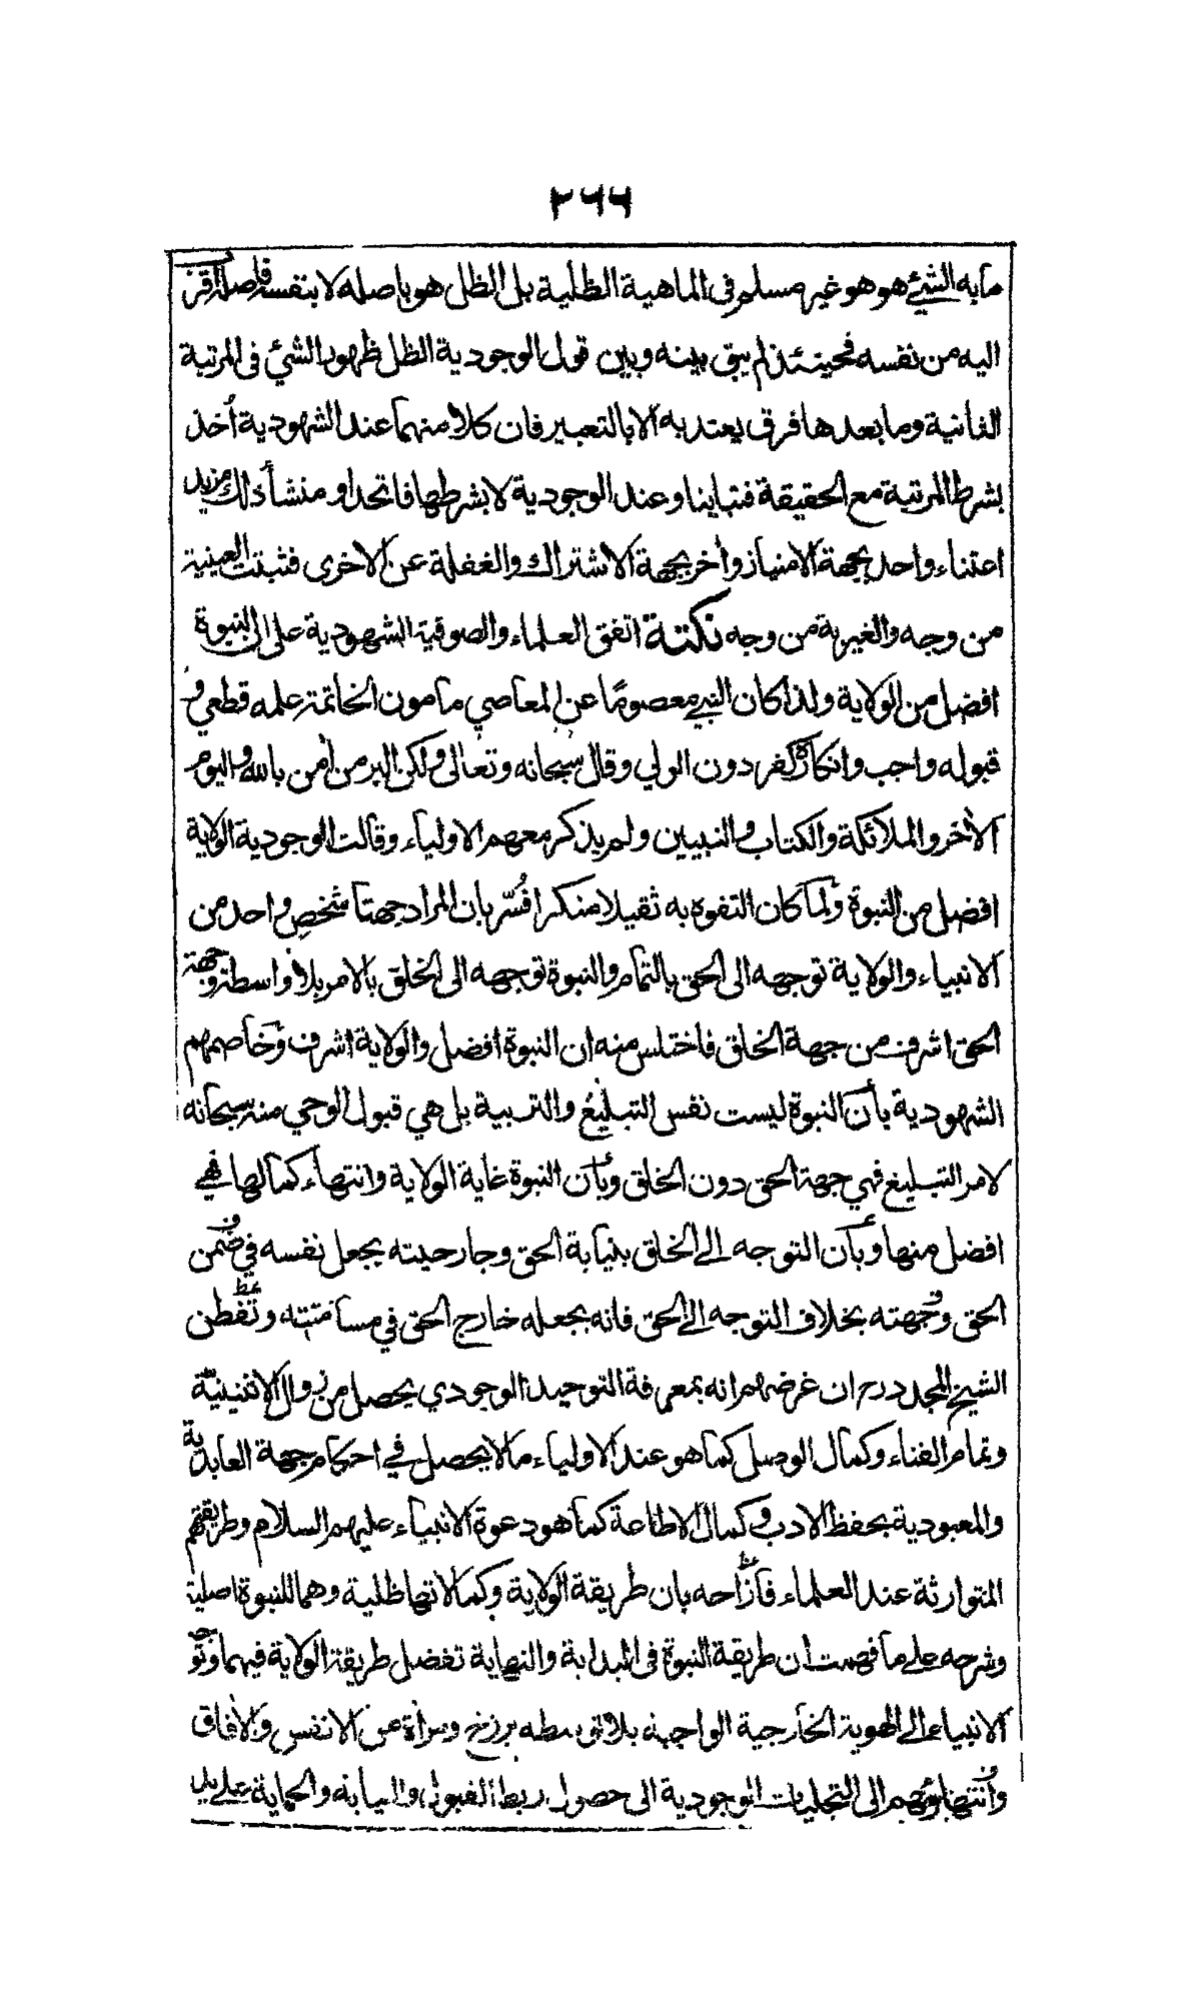 ٢٦٦
مابه الشيئ هو هو غير مسلم فى الماهية الظلية بل الظل هو باصله لا بنفسه فاصله اقرب
اليه من نفسه فحينئذ لم يبق بينه وبين قول الوجودية الظل ظهور الشئ فى المرتبة
الثانية وما بعدها فرق يعتد به الا بالتعبير فان كلا منهما عند الشهودية أخذ
بشرط المرتبة مع الحقيقة فتباينا وعند الوجودية لا بشرطها فاتحدا ومنشأ ذلك مزيد
اعتناء واحد بجهة الامتياز وأخر بجهة الاشتراك والغفلة عن الاخرى فثبتت العينية
من وجه والغيرية من وجه نكتة اتفق العلماء والصوفية الشهودية على ان النبوة
افضل من الولاية ولذا كان النبي معصومًا عن المعاصي مامون الخاتمة علمه قطعي و
قبوله واجب وانكاره كفر دون الولي وقال سبحانه وتعالى ولكن البر من أمن بالله واليوم
الأخر والملائكة والكتاب والنبيين ولم يذكر معهم الاولياء وقالت الوجودية الولاية
افضل من النبوة ولما كان التفوه به ثقيلا منكرا فُسّر بان المراد جهتا شخص واحد من
الانبياء والولاية توجهه الى الحق بالتمام والنبوة توجهه الى الخلق بالامر بلا واسطة وجهة
الحق اشرف من جهة الخلق فاختلس منه ان النبوة افضل والولاية اشرف وخاصمهم
الشهودية بأن النبوة ليست نفس التبليغ والتربية بل هي قبول الوحي منه سبحانه
لامر التبليغ فهي جهة الحق دون الخلق وبأن النبوة غاية الولاية وانتهاء كمالها فهي
افضل منها وبأن التوجه الى الخلق بنيابة الحق وجارحيته يجعل نفسه في ضمن
الحق وجهته بخلاف التوجه الى الحق فانه يجعله خارج الحق في مسامتته وتفطن
الشيخ المجدد رح ان غرضهم انه بمعرفة التوحيد الوجودي يحصل من زوال الاثنينية
وتمام الفناء وكمال الوصل كما هو عند الاولياء ما لا يحصل في احكام جهة العابدية
والمعبودية بحفظ الادب وكمال الاطاعة كما هو دعوة الانبياء عليهم السلام وطريقتهم
المتوارثة عند العلماء فأزاحه بان طريقة الولاية وكمالاتها ظلية وهما للنبوة اصلية
وشرحه على ما فهمت ان طريقة النبوة فى البداية والنهاية تفضل طريقة الولاية فيهما وتوجه
الانبياء الى الهوية الخارجية الواجبة بلا توسطه برزخ ومرأة من الانفس والأفاق
وانتهاؤهم الى التجليات الوجودية الى حصول ربط القبول والنيابة والحماية على يد